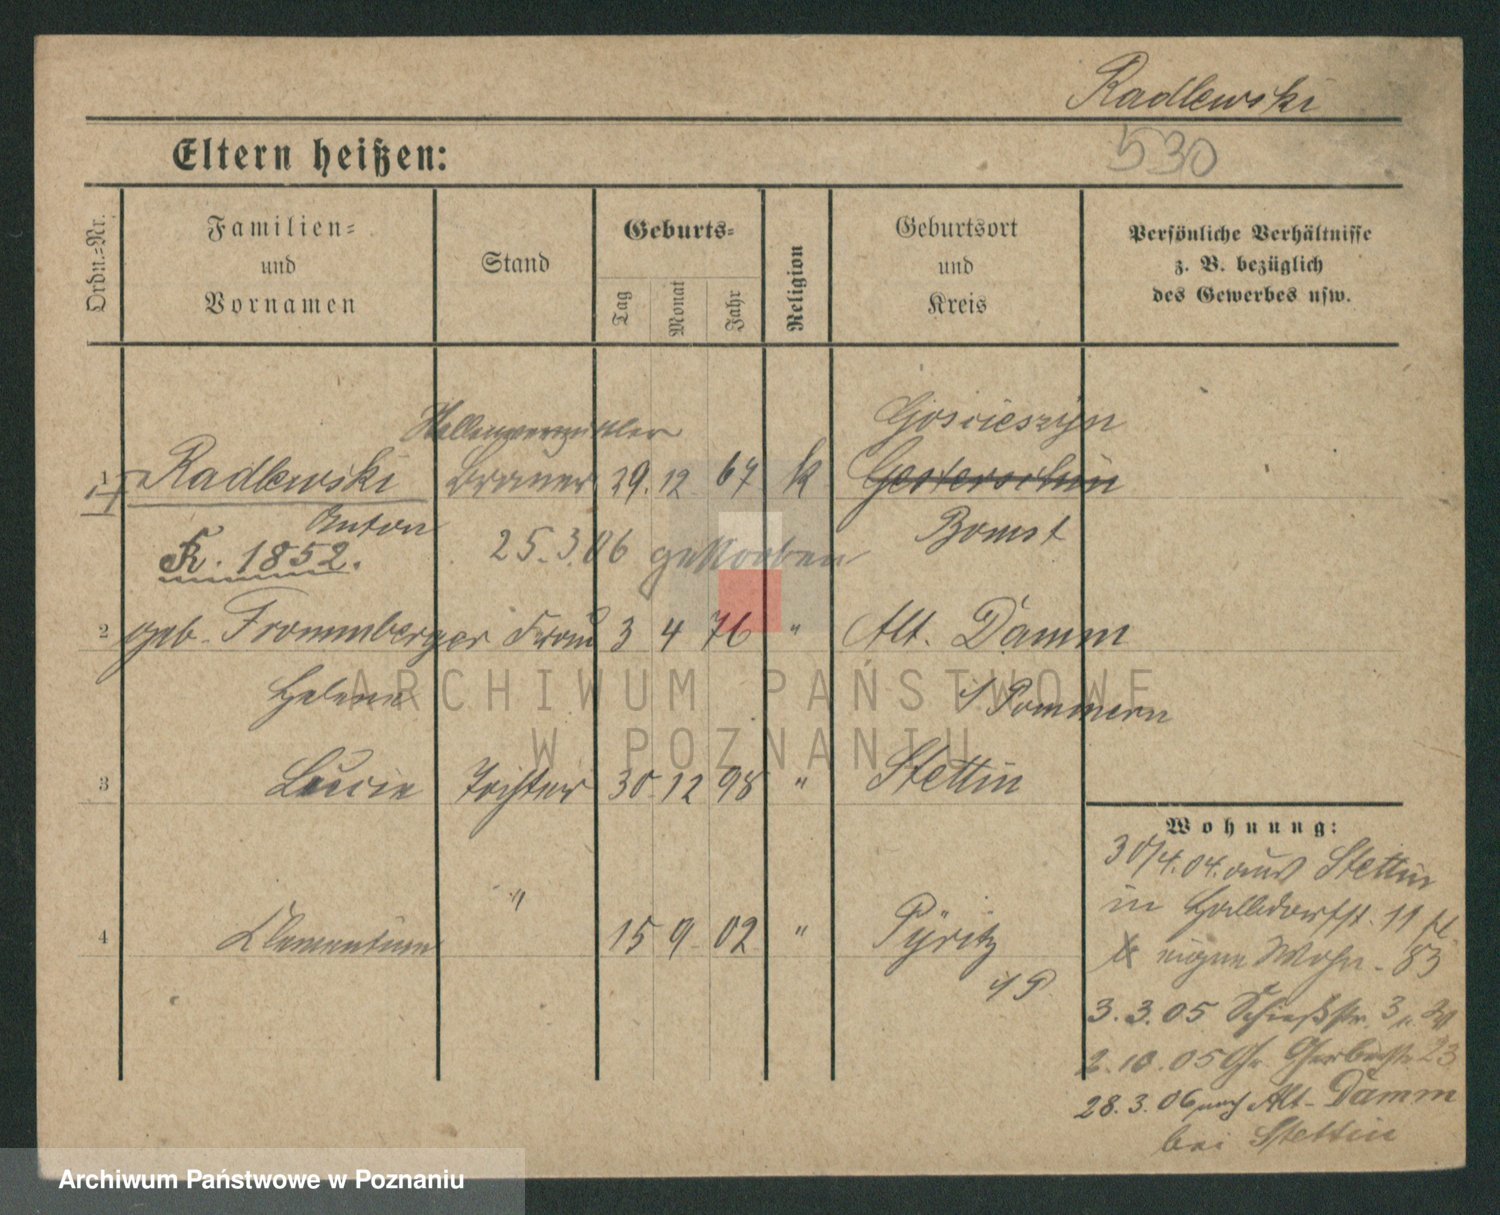 Radlewski
530
Eltern heißen:
Ordn.=Nr.
Familien=
und
Vornamen
Stand
Geburts=
Tag
Monat
Jahr
Religion
Geburtsort
und
Kreis
Persönliche Verhältnisse
z. B. bezüglich
des Gewerbes usw.
Stellenvermittler
Gościeszyn
1 Radlewski Brauer 29. 12 67 k
Anton Bomst
K. 1852. 25.3.06 gestorben
2 geb. Frommberger Frau 3 4 76 " Alt. Damm
Helene i/ Pommern
3 Lucie Tochter 30. 12 98 " Stettin
4 Clementine " 15 9 02 " Pyritz
i/ P.
Wohnung:
30/4.04. aus Stettin
in Halldorfstr. 11
eigene Wohn.
3.3.05 Schießstr. 3
2.10.05 Gr. Gerberstr. 23
28.3.06 nach Alt-Damm
bei Stettin
ARCHIWUM PAŃSTWOWE
W POZNANIU
Archiwum Państwowe w Poznaniu